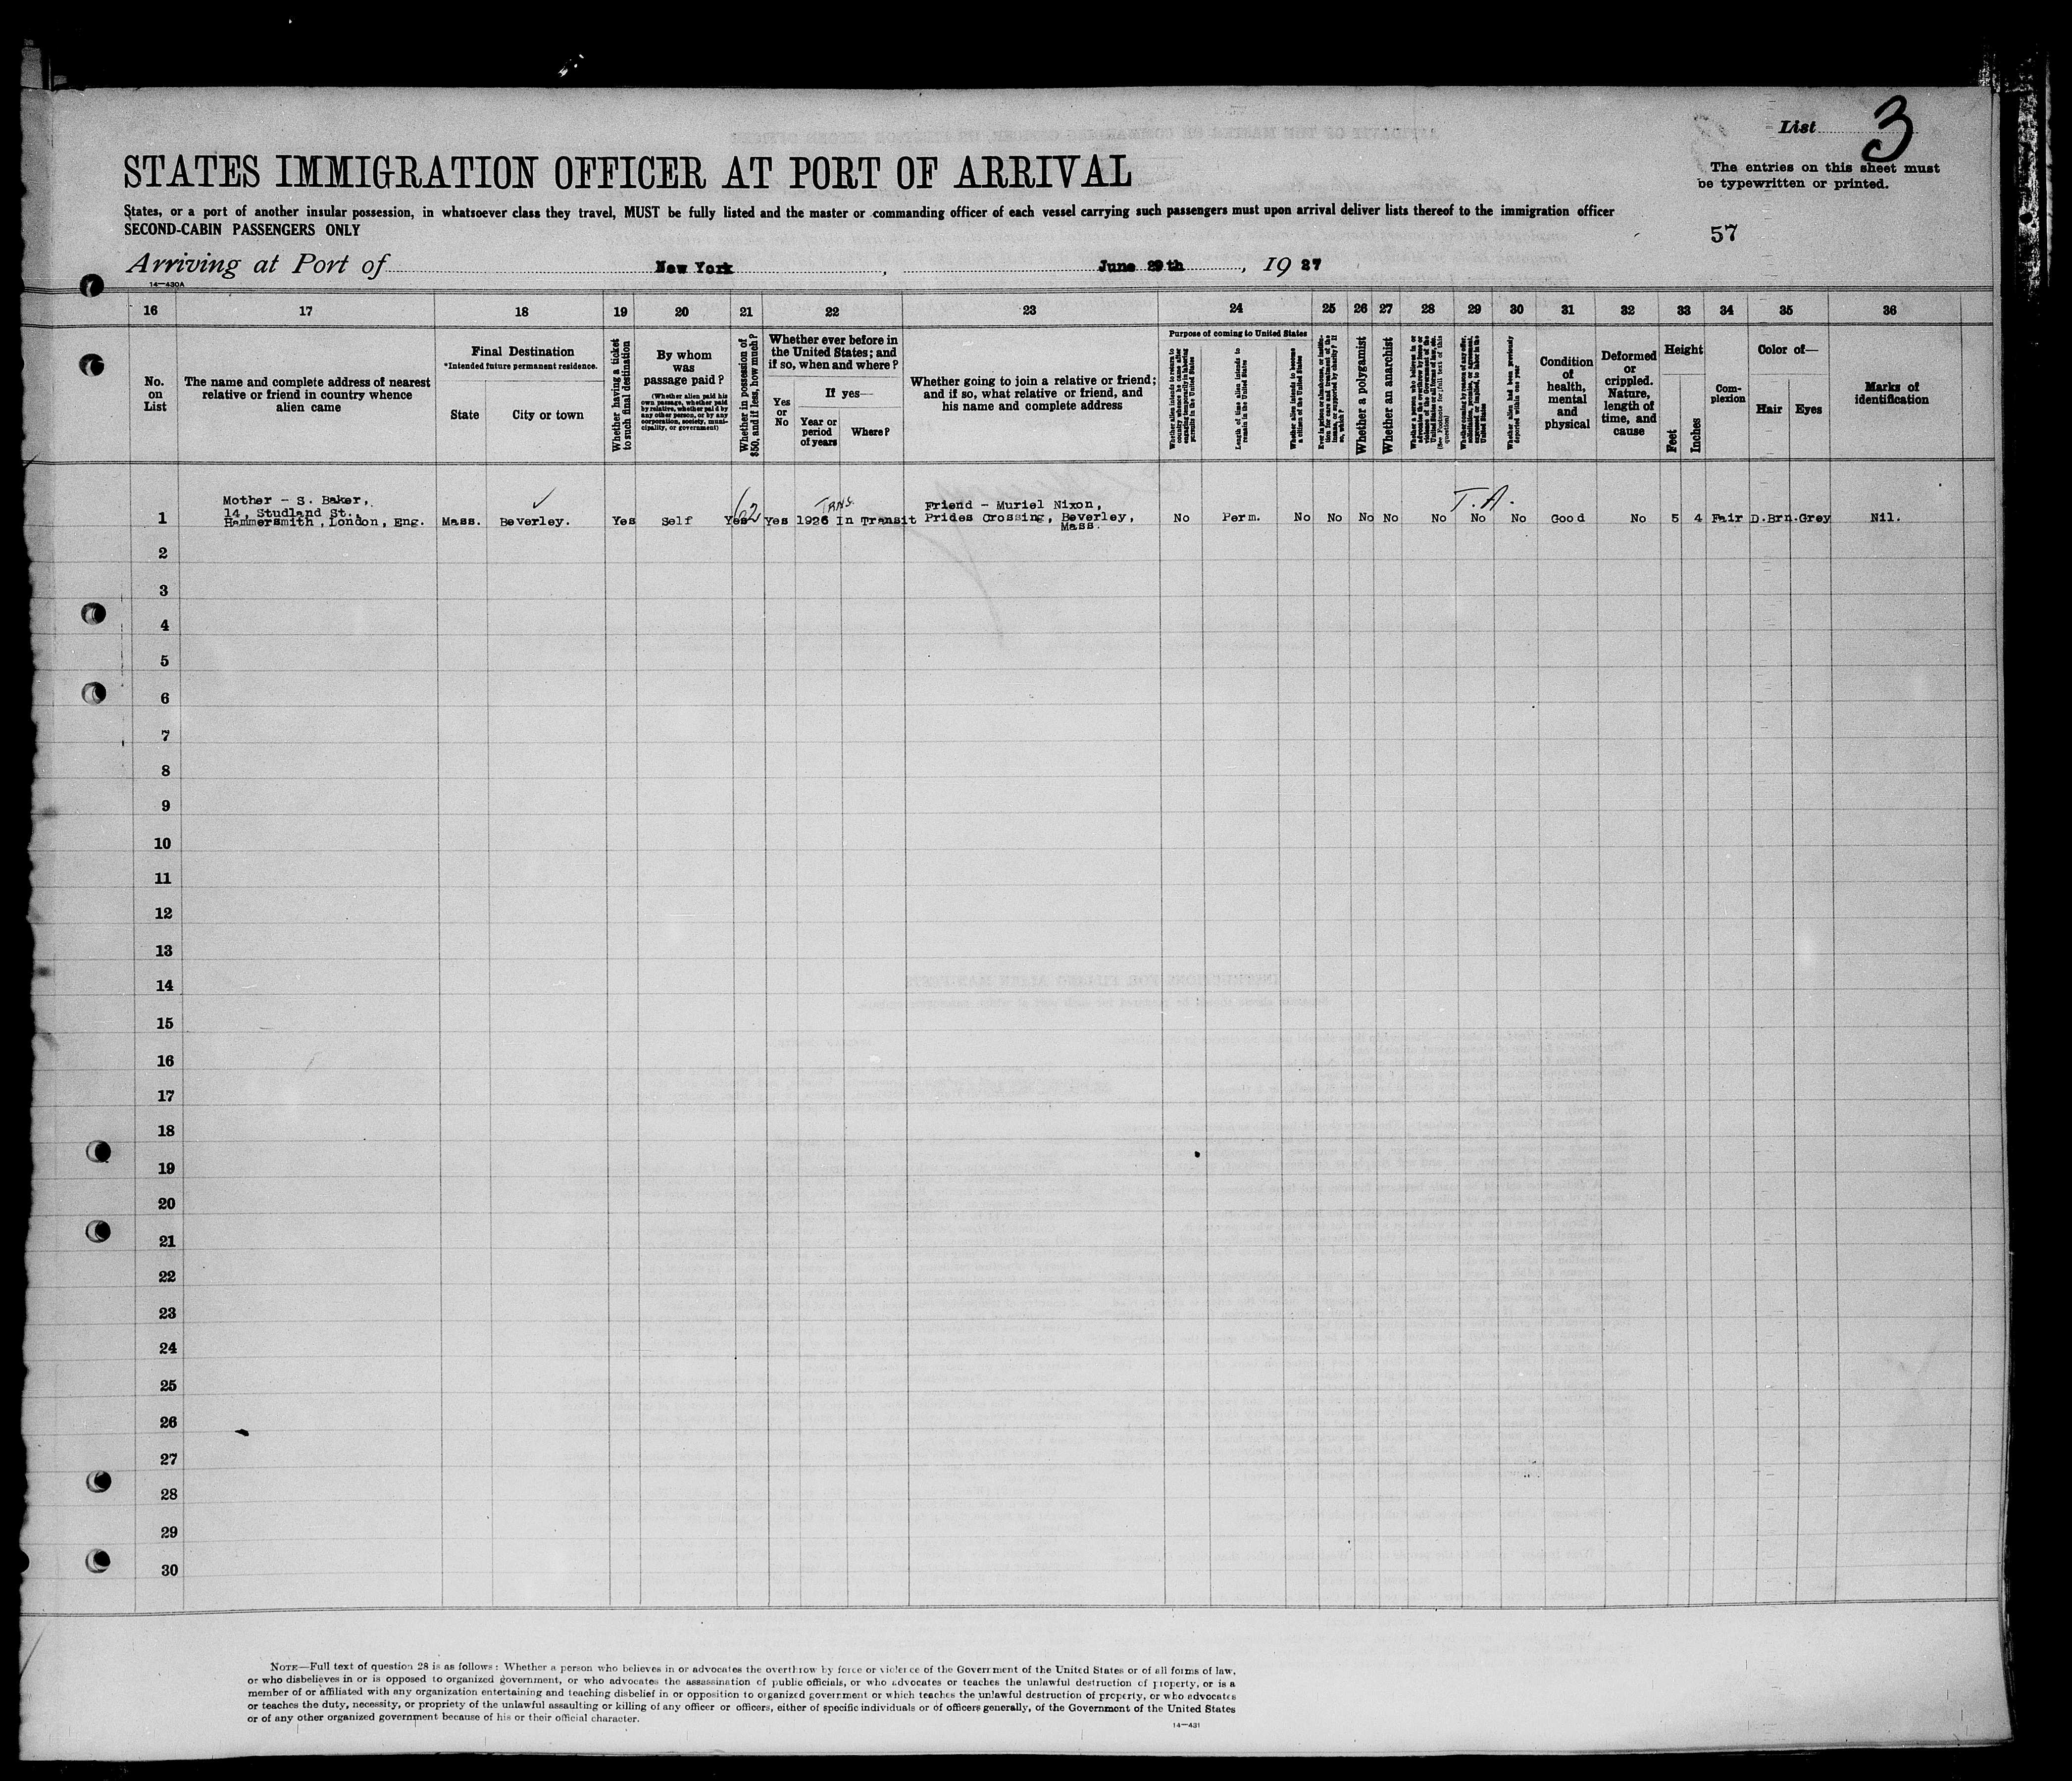 List 3
STATES IMMIGRATION OFFICER AT PORT OF ARRIVAL
The entries on this sheet must
be typewritten or printed.
States, or a port of another insular possession, in whatsoever class they travel, MUST be fully listed and the master or commanding officer of each vessel carrying such passengers must upon arrival deliver lists thereof to the immigration officer
SECOND-CABIN PASSENGERS ONLY
57
Arriving at Port of New York, June 29th, 1927
14—430A
16 17 18 19 20 21 22 23 24 25 26 27 28 29 30 31 32 33 34 35 36
No. on List
The name and complete address of nearest relative or friend in country whence alien came
Final Destination
*Intended future permanent residence.
State
City or town
Whether having a ticket to such final destination
By whom was passage paid?
(Whether alien paid his own passage, whether paid by relative, whether paid by any other person, or by any corporation, society, municipality, or government)
Whether in possession of $50, and if less, how much?
Whether ever before in the United States; and if so, when and where?
Yes or No
If yes—
Year or period of years
Where?
Whether going to join a relative or friend; and if so, what relative or friend, and his name and complete address
Purpose of coming to United States
Whether alien intends to return to country whence he came after engaging temporarily in laboring pursuits in the United States
Length of time alien intends to remain in the United States
Whether alien intends to become a citizen of the United States
Ever in prison or almshouse, or institution for care and treatment of the insane, or supported by charity? If so, which?
Whether a polygamist
Whether an anarchist
Whether a person who believes in or advocates the overthrow by force or violence of the Government of the United States or all forms of law, etc. (See footnote for full text of this question)
Whether coming by reason of any offer, solicitation, promise, or agreement, expressed or implied, to labor in the United States
Whether alien had been previously deported within one year
Condition of health, mental and physical
Deformed or crippled. Nature, length of time, and cause
Height
Feet
Inches
Com-plexion
Color of—
Hair
Eyes
Marks of identification
Mother - S. Baker,
14, Studland St.,
Hammersmith, London, Eng.
1 Mass. Beverley. Yes Self Yes 62 Yes 1926 In Transit
TRNS.
Friend - Muriel Nixon,
Prides Crossing, Beverley,
Mass.
T.A.
No Perm. No No No No No No No Good No 5 4 Fair D.Brn. Grey Nil.
2
3
4
5
6
7
8
9
10
11
12
13
14
15
16
17
18
19
20
21
22
23
24
25
26
27
28
29
30
NOTE—Full text of question 28 is as follows: Whether a person who believes in or advocates the overthrow by force or violence of the Government of the United States or of all forms of law,
or who disbelieves in or is opposed to organized government, or who advocates the assassination of public officials, or who advocates or teaches the unlawful destruction of property, or is a
member of or affiliated with any organization entertaining and teaching disbelief in or opposition to organized government or which teaches the unlawful destruction of property, or who advocates
or teaches the duty, necessity, or propriety of the unlawful assaulting or killing of any officer or officers, either of specific individuals or of officers generally, of the Government of the United States
or of any other organized government because of his or their official character.
14—431